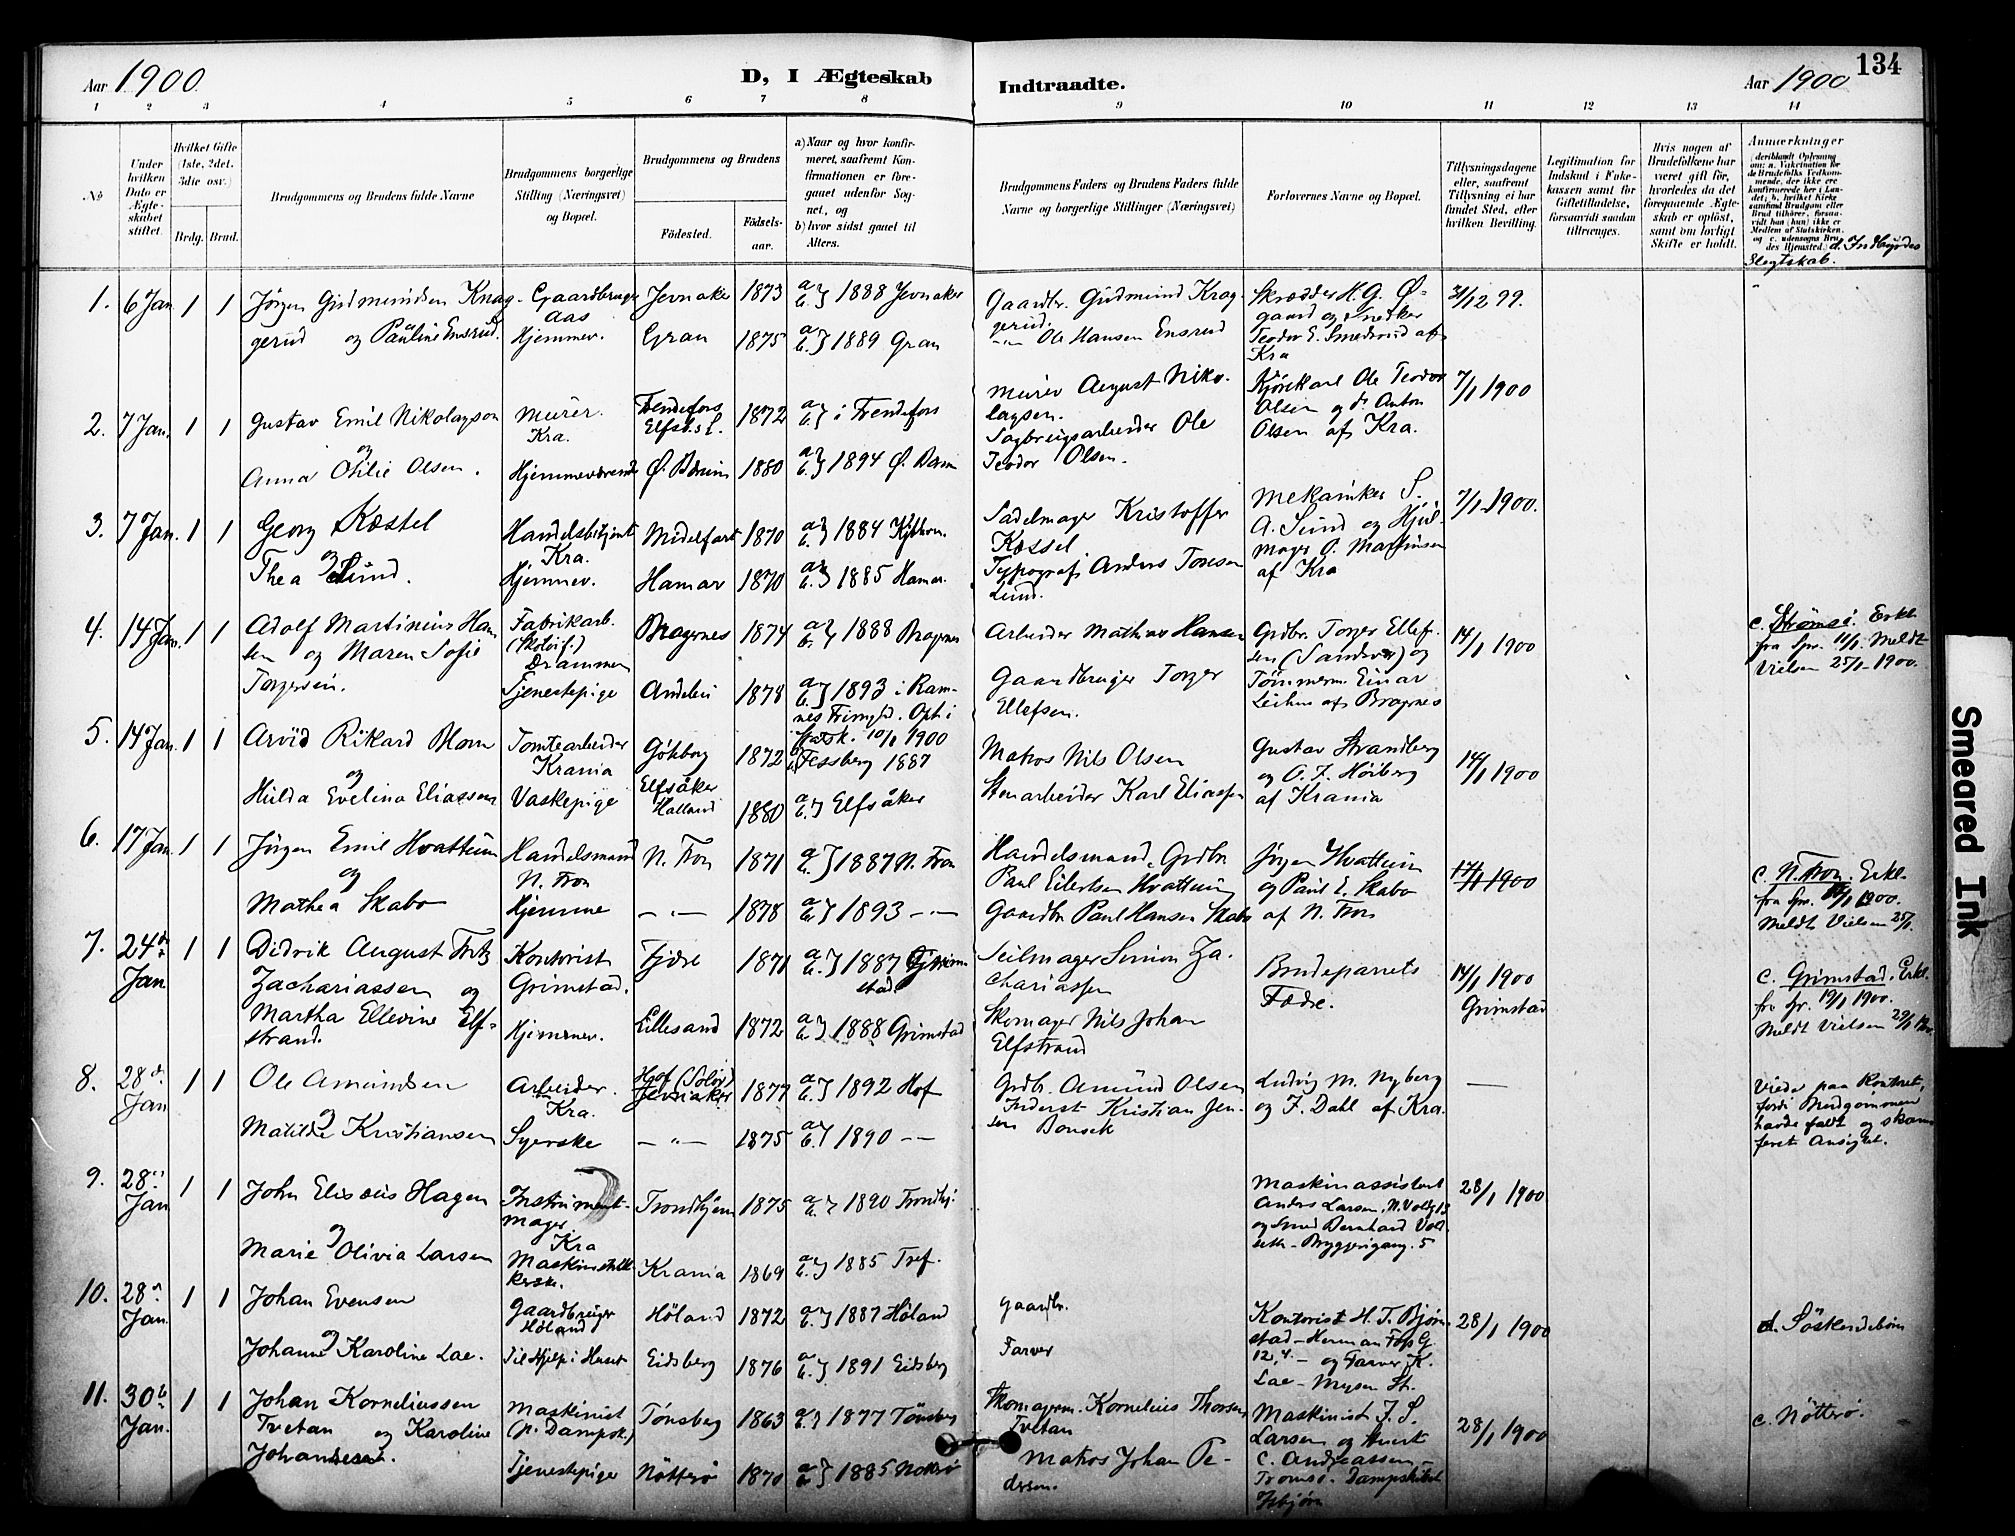 134
Aar 1900
D, I Ægteskab
Indtraadte.
Aar 1900
1 2 3 4 5 6 7 8 9 10 11 12 13 14
No
Under hvilken Dato er Ægteskabet stiftet.
Hvilket Gifte (1ste, 2det, 3die osv.)
Brdg. Brud.
Brudgommens og Brudens fulde Navne
Brudgommens borgerlige Stilling (Næringsvei) og Bopæl.
Brudgommens og Brudens
Fødested.
Fødselsaar.
a) Naar og hvor konfirmeret, saafremt Konfirmationen er foregaaet udenfor Sognet, og
b) hvor sidst gaaet til Alters.
Brudgommens Faders og Brudens Faders fulde Navne og borgerlige Stillinger (Næringsvei)
Forlovernes Navne og Bopæl.
Tillysningsdagene eller, saafremt Tillysning ei har fundet Sted, efter hvilken Bevilling.
Legitimation for Indskud i Enkekassen samt for Giftetilladelse, forsaavidt saadan tiltrænges.
Hvis nogen af Brudefolkene har været gift før, hvorledes da det foregaaende Ægteskab er opløst, samt om lovligt Skifte er holdt.
Anmerkninger
d. Indbyrdes Slegtskab.
1. 6 Jan 1 1 Jörgen Gudmundsen Knaggerud og Pauline Ensrud.
Gaardbruger Aas
Hjemmev.
Jevnaker 1873 a b } 1888 Jevnaker
Gran 1875 a b } 1889 Gran
Gaardbr. Gudmund Kraggerud.
"— Ole Hansen Ensrud
Skrædder H. G. Øgaard og Snedker Teodor E. Smedsrud af Kra
31/12 99.
2. 7 Jan. 1 1 Gustav Emil Nikolaysen
og
Anna Otilie Olsen.
Murer. Kra.
Hjemmeværende
1872 a b } i
Ø. Bærum 1880 a b } 1894 Ø. Bærum
Murer August Nikolaysen.
Sagbrugsarbeider Ole Teodor Olsen.
Kjørekarl Ole Teodor Olsen og d. Anton Olsen af Kra.
7/1 1900
3. 7 Jan. 1 1 Georg Kæstel
og
Thea Lund.
Handelsbetjent Kra.
Hjemmev.
Midelfart 1870 a b } 1884 Kjbhvn.
Hamar 1870 a b } 1885 Hamar.
Sadelmager Kristoffer Kæssel
Typograf Anders Tonsen Lund.
Mekaniker S. A. Lund og Hjulmager O. Martinsen af Kra
7/1 1900.
4. 14 Jan. 1 1 Adolf Martinius Hansen og Maren Sofie Torgersen.
Fabrikarb. Drammen
Tjenestepige
Bragernes 1874 a b } 1888 Bragernes
Andebu 1878 a b } 1893 i Ramnes
Arbeider Mathias Hansen
Gaardbruger Torger Ellefsen.
Grdbr. Torger Ellefsen (Sandsvær) og Tömmerm. Einar af Bragnes
14/1 1900
c. Strømsö. Erkl. fra Spr. 11/1. Meldt Vielsen 25/1-1900.
5. 14 Jan. 1 1 Arvid Rikard Blom
og
Hulda Evelina Eliassen
Tomtearbeider Krania
Vaskepige
Göteborg 1872 Fessberg 1887
Elfsåker Halland 1880 a b } Elfsåker
Matros Nils Olsen
Stenarbeider Karl Eliassen
Gustav Strandberg og O. F. Höiberg af Krania
14/1 1900
6. 17 Jan. 1 1 Jörgen Emil Hvattum
og
Mathea Skabo
Handelsmand N. Fron
Hjemme
N. Fron 1871 a b } 1887 N. Fron
— " — 1878 a b } 1893 — " —
Handelsmand, Grdbr. Paul Eilertsen Hvattum
Gaardbr Paul Hansen Skabo
Jörgen Hvattum og Paul E. Skabo af N. Fron
17/1 1900
c. N. Fron. Erkl. fra Spr. 1900. Meldt Vielsen 25/1.
7. 24de Jan 1 1 Didrik August Fritz Zachariassen og Martha Ellevine Elfstrand.
Kontorist Grimstad.
Hjemmev.
Fjære 1871 a b } 1887 Grimstad.
Lillesand 1872 a b } 1888 Grimstad
Seilmager Simon Zachariassen
Skomager Nils Johan Elfstrand
Brudeparrets Fædre.
14/1 1900 Grimstad
c. Grimstad. Erkl. fra Spr. 19/1 1900. Meldt Vielsen
8. 28de Jan 1 1 Ole Amundsen
og
Matilde Kristiansen
Arbeider Kra.
Syerske
Hof (Solör) Jevnaker 1877 a b } 1892 Hof
— " — 1875 a b } 1890 — —
Grdbr. Amund Olsen
Inderst Kristian Jensen
Ludvig M. Nyberg og F. Dahl af Kra.
—
Viede paa Kontoret, fordi Brudgommen havde faldt og skamferet Ansigtet.
9. 28de Jan 1 1 John Elisæus Hagen
og
Marie Olivia Larsen
Instrumentmager Kra
Trondhjem 1875 a b } 1890 Trondhj.
Krania 1869 a b } 1885 Tref.
Maskinassistent Anders Larsen, N. Voldg 13 og Smed Bernhard Vollseth - Bryggerigang. 5
28/1 1900
10. 28de Jan. 1 1 Johan Evensen
og
Johanne Karoline Lae.
Gaardbruger Höland
Til Hjelp i Huset
Höland 1872 a b } 1887 Höland
Eidsberg 1876 a b } 1891 Eidsberg
Gaardbr.
Farver
Kontorist H. T. Bjørnstad - Herman Foss G. 12, 4. - og Farver K. Lae - Mysen St.
28/1 1900
d. Söskendebörn
11. 30te Jan. 1 1 Johan Korneliussen Tvetan og Karoline Johansen.
Maskinist (p. Dampsk.)
Tjenestepige
Tönsberg 1863 a b } 1877 Tönsberg
Nötterö 1870 a b } 1885 Nötterö
Skomagerm. Kornelius Thorsen Tvetan
Matros Johan Pedersen.
Maskinist J. S. Larsen og C. Andreassen - Tromsö. Dampskibet Isbjörn
28/1 1900
c. Nötterö.
Smeared Ink